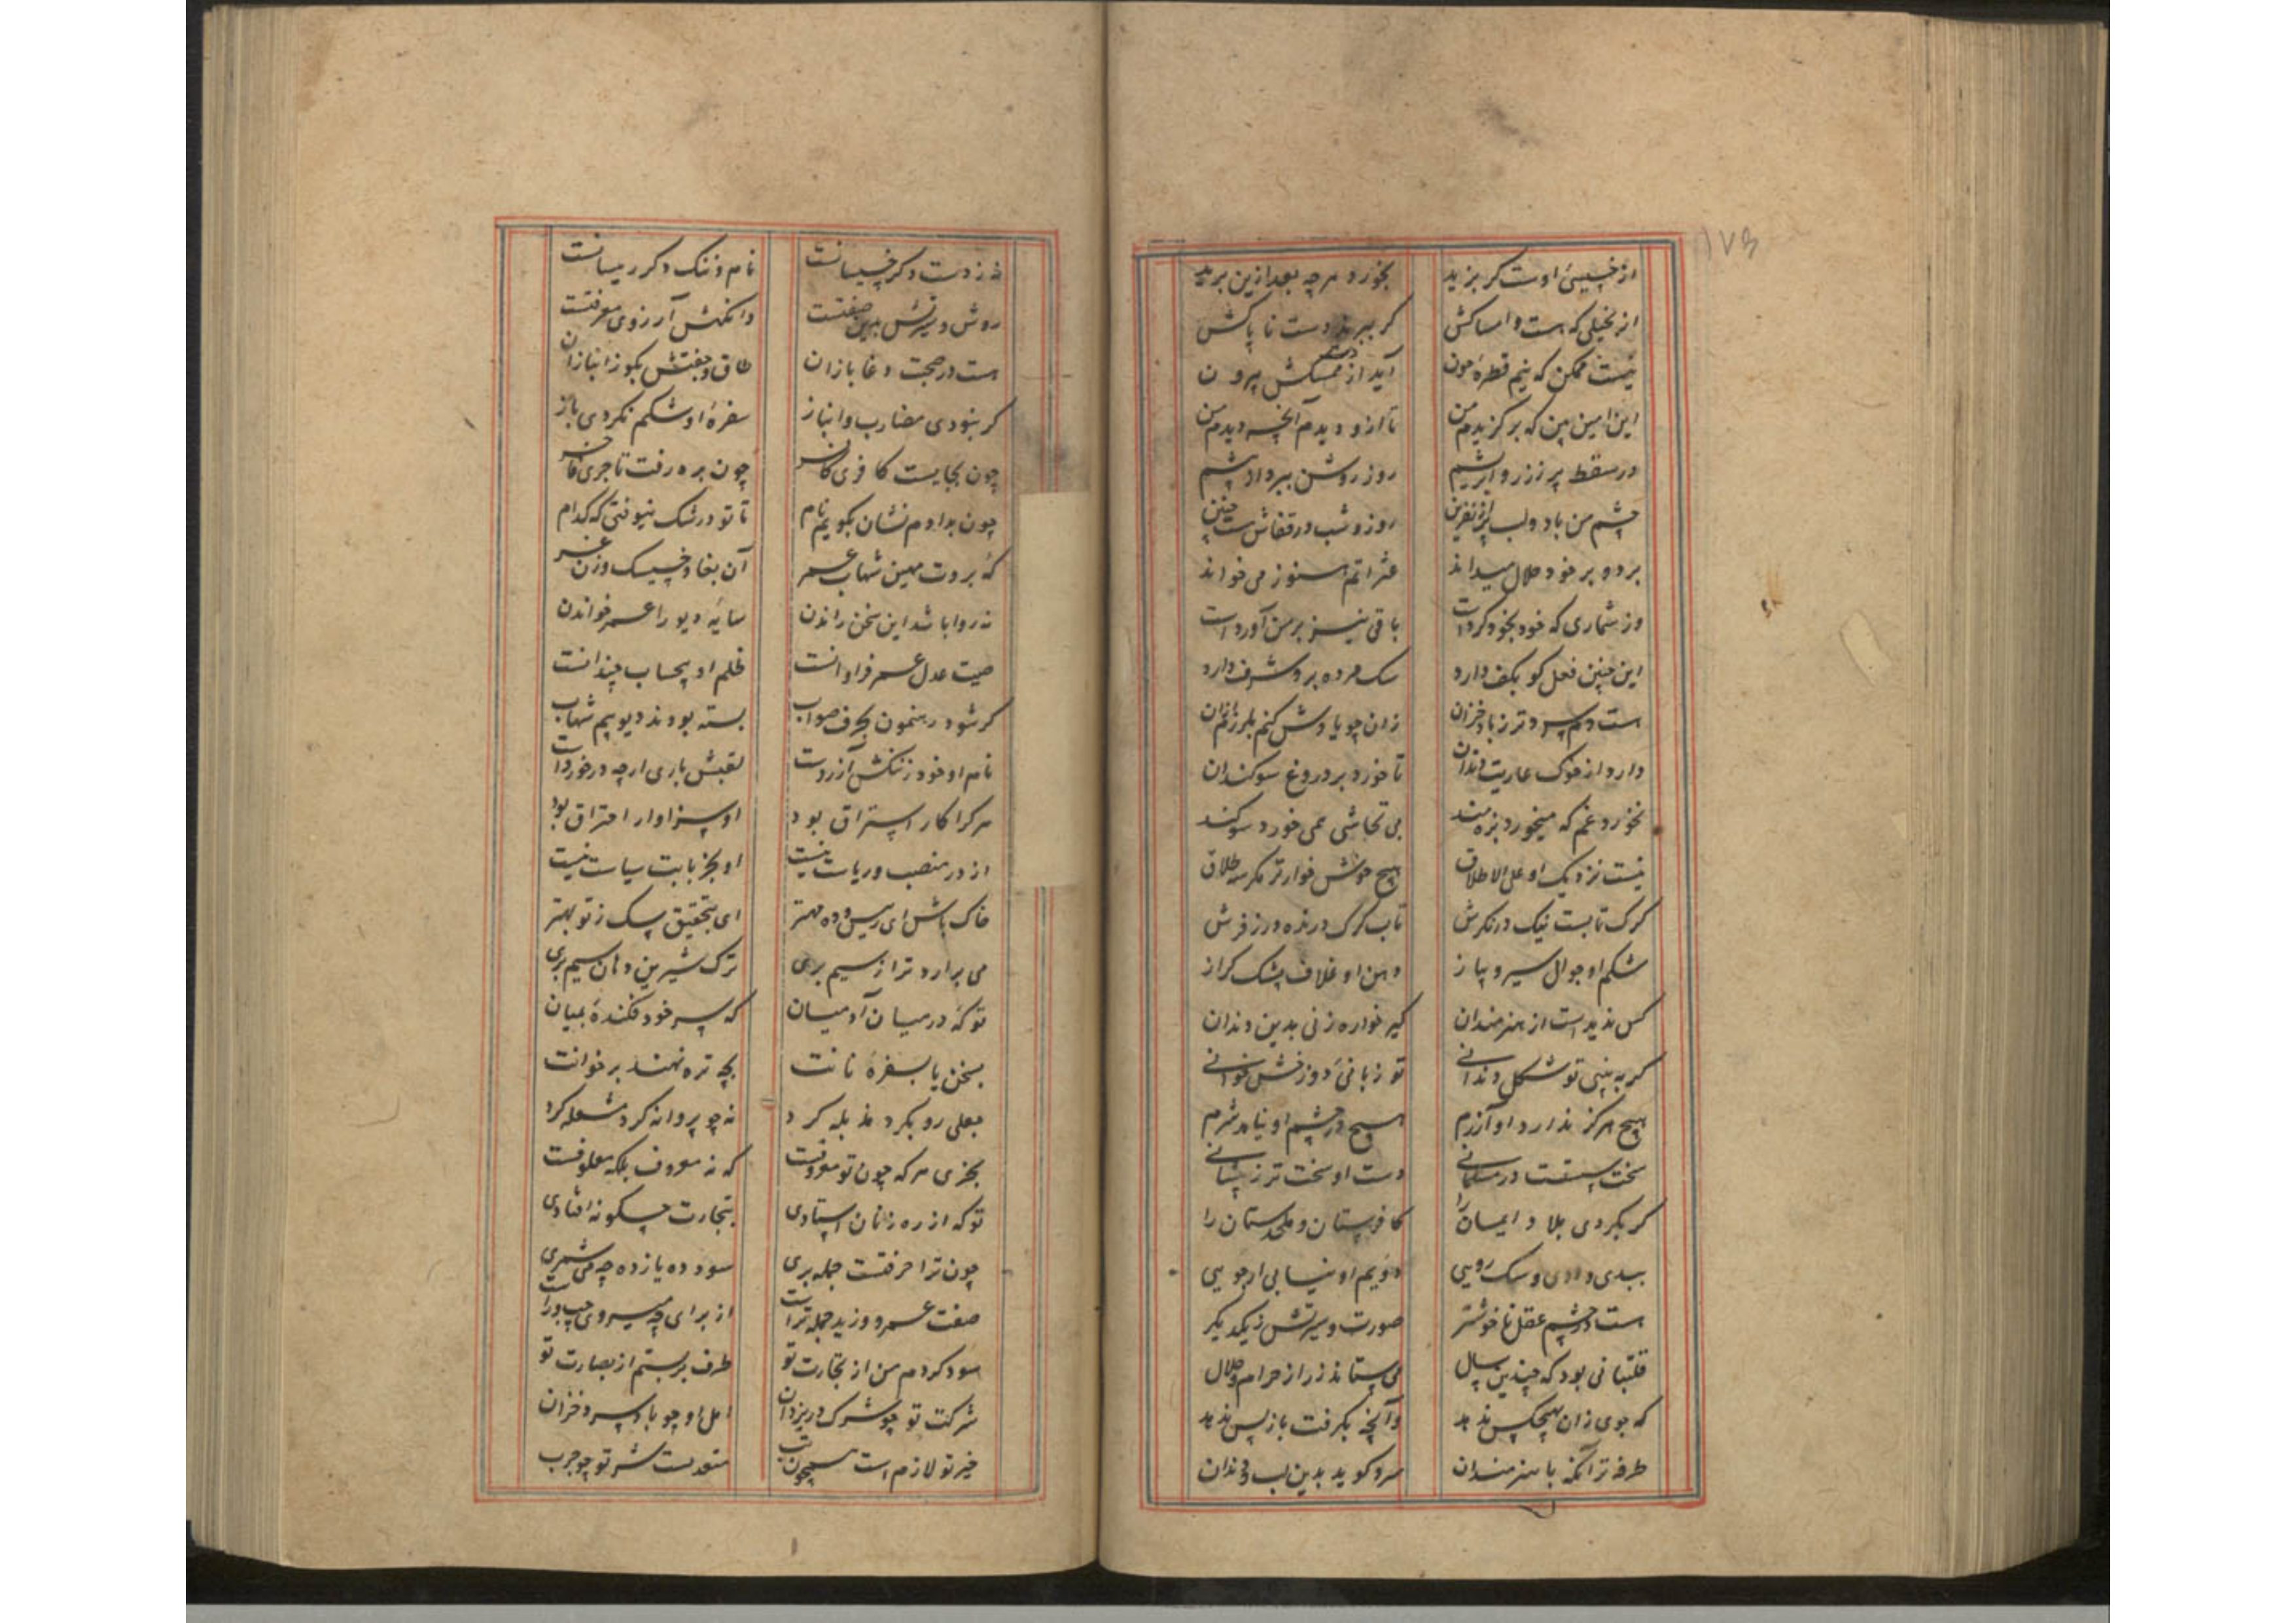 ۱۷۵
از خسیسی اوست کر بزید بخورد هرچه بعد ازین برید
از بخیلی که هست و امساکش کر ببرند دست ناپاکش
نیست ممکن که نیم قطرهٔ خون آید از دست ممسکش بیرون
این امین بین که بر کزیدم من تا ازو دیدم آنچه دیدم من
در سقط پر ززر و ابریشم روز روشن ببرد از چشم
چشم من باد و لب پر از نفرین روز و شب در قفاش هست چنین
برد و بر خود حلال میداند عثراتم هنوز می خواند
وز شماری که خود بخود کردست باقی نیز بر من آوردست
این چنین فعل کو بکف دارد سک مرده برو شرف دارد
هست دم سردتر ز باد خزان زان چو یادش کنم بلرزم از آن
دارد از خوک عاریت دندان تا خورد بر دروغ سوکندان
نخورد غم که میخورد بزه مند بی تحاشی همی خورد سوکند
نیست نزدیک او علی الاطلاق هیچ خوش خوارتر مکر سه طلاق
کرک تا بست نیک درنکرش تاب کرک درنده درز فرش
شکم او جوال سیر و پیاز دهن او غلاف پشک کراز
کس ندیدست از هنرمندان کیر خواره زنی بدین دندان
کر ببینی تو شکل دندانی تو زبانی دوزخش خوانی
هیچ هرکز ندارد او آزرم هیچ در چشم او نیامد شرم
سخت سستست در مسلمانی دست او سخت تر ز پیشانی
کر بکردی بلاد ایمان را کافرستان و ملحدستان را
ببدی و ددی و سک رویی دویم او نیابی ار جویی
هست در چشم عقل ناخوشتر صورت و سیرتش ز یکدیکر
قلتبانی بود که چندین سال می ستاند زر از حرام و حلال
که جوی زان بهیچکس ندهد وآنچه بکرفت باز پس ندهد
طرفه تر آنکه با هنرمندان سرد کوید بدین لب و دندان
نه ز دست دکر خسیسانست نام و ننک دکر رییسانست
روش و سیرتش بدین صفتست وانکهش آرزوی معرفتست
هست در صحبت دغا بازان طاق و جفتش بکو ز انبازان
کر نبودی مضارب و انباز سفرهٔ او شکم نکردی باز
چون بجایست کافری کافر چون بره رفت تاجری فاجر
چون بدادم نشان بکویم نام تا تو در شک نیوفتی که کدام
که بروت مهین شهاب عمر آن بغا و خسیسک وزن غر
نه روا باشد این سخن راندن سایهٔ دیو را عمر خواندن
صیت عدل عمر فراوانست ظلم او بیحساب چندانست
کر شود رهنمون بحرف صواب بسته بودند دیو بیم شهاب
نام او خود ز ننکش آزردست لقبش باری ارچه در خوردست
هر کرا کار استراق بود او سزاوار احتراق بود
از در منصب و ریاست نیست او بجز بابت سیاست نیست
خاک باش ای رییس و ده مهتر ای بتحقیق سک ز تو بهتر
می برارد ترا ز سیم بری ترک شیرین دهان سیم بری
تو که در میان آدمیان که سر خود فکندهٔ بمیان
بسخن یا بسفرهٔ نانت بچه تره نهند بر خوانت
جعلی رو بکرد مذبله کرد نه چو پروانه کرد مشعله کرد
بخری هر که چون تو معروفست که نه معروف بلکه معلوفست
تو که از ره زنان استادی بتجارت چکونه افتادی
چون ترا حرفتست جمله بری سود ده یازده چه می شمری
صفت عمرو و زید جمله تراست از برای چه میروی چپ و راست
سود کردم من از تجارت تو طرف بربستم از بصارت تو
شرکت تو چو شرک در یزدان اهل او چو باد سرد خزان
خیر تو لازم است همچون تب متعدیست شر تو چو جرب